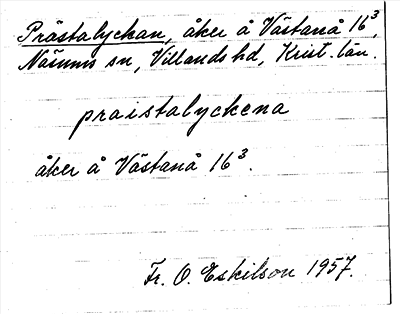 Prästalyckan, åker å Västanå 16³,
Näsums sn, Villands hd, Krist. län.
praistalyckena
åker å Västanå 16³.
Fr. O. Eskilson 1957.